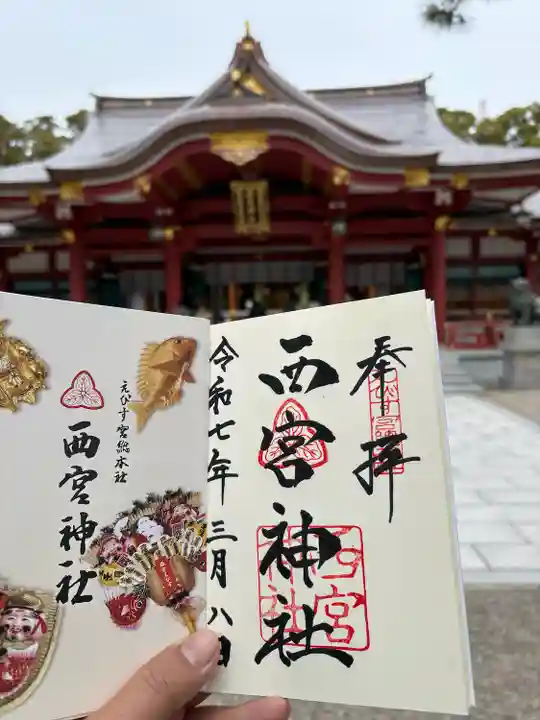 奉拝
西宮神社
令和七年三月八日
西宮神社
えびす宮総本社
西宮神社